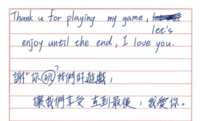 Thank u for playing my game, let's
enjoy until the end, I love you.
謝謝你玩我們的遊戲,
讓我們享受 直到最後,我愛你。